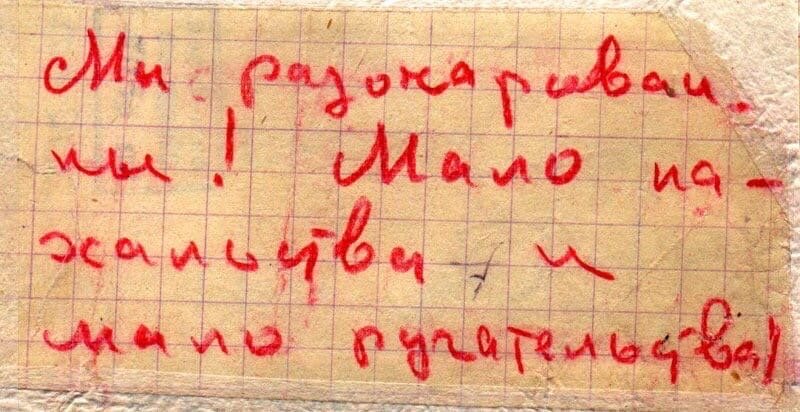 Ми разочариван-
ны! Мало на-
хальства и
мало ругательства!